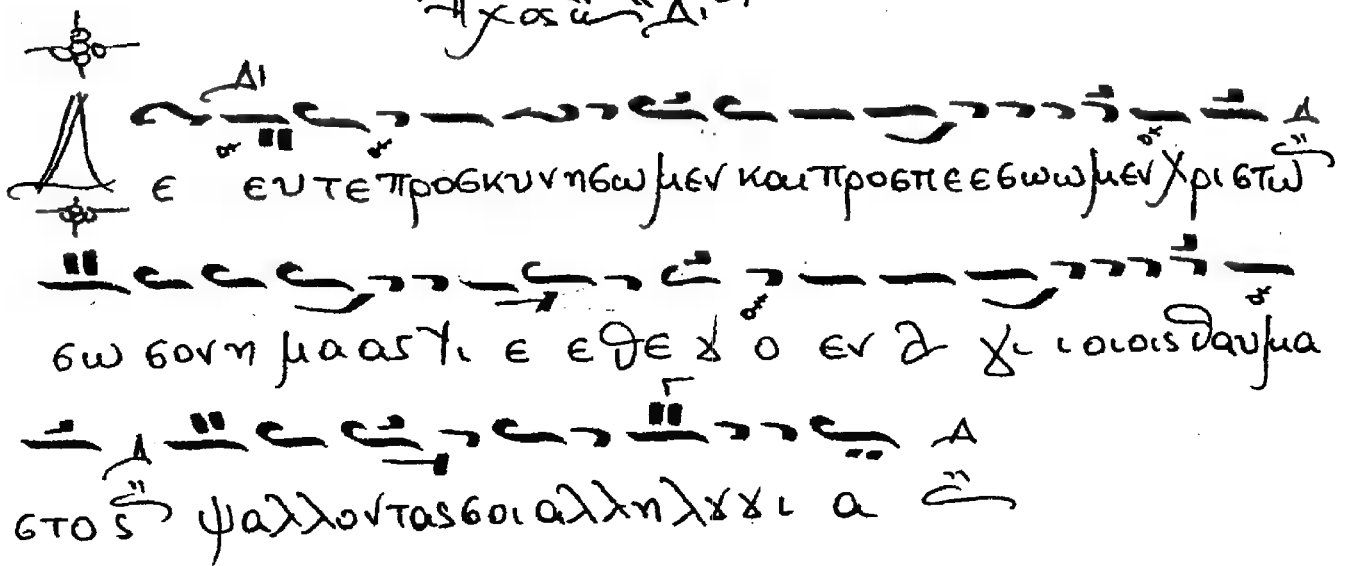 Ἦχος ἅ Δι
Δι
Δε ευτε προσκυνησωμεν και προσπεεεσωωμεν Χριστω
σωσον ημααας Υιε ε Θεȣ ο εν αγιιοιοις θαυμα
στος ψαλλοντας σοι αλληλȣȣια